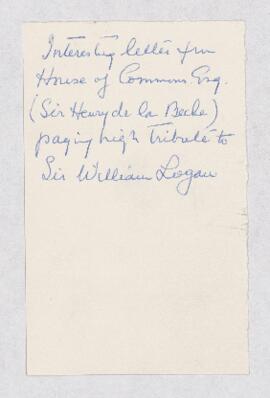 Interesting letter from
House of Commons Esq.
(Sir Henry de la Beche)
paying high Tribute to
Sir William Logan